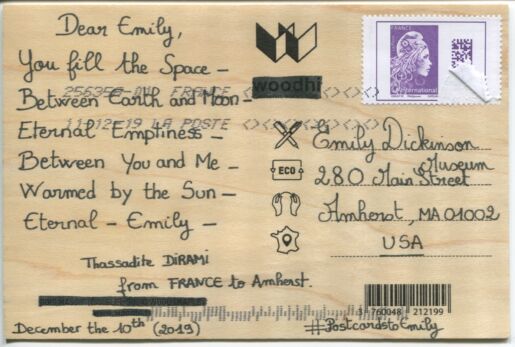 Dear Emily,
You fill the Space -
Between Earth and Moon -
Eternal Emptiness -
Between You and Me -
Warmed by the Sun -
Eternal - Emily -
Thassadite DIRAMI
from FRANCE to Amherst.
December the 10th (2019)
woodhi
FRANCE
International
FRANCE
11-12-19 LA POSTE
ECO
Emily Dickinson
Museum
280 Main Street
Amherst, MA 01002
USA
3 760048 212199
#PostcardstoEmily